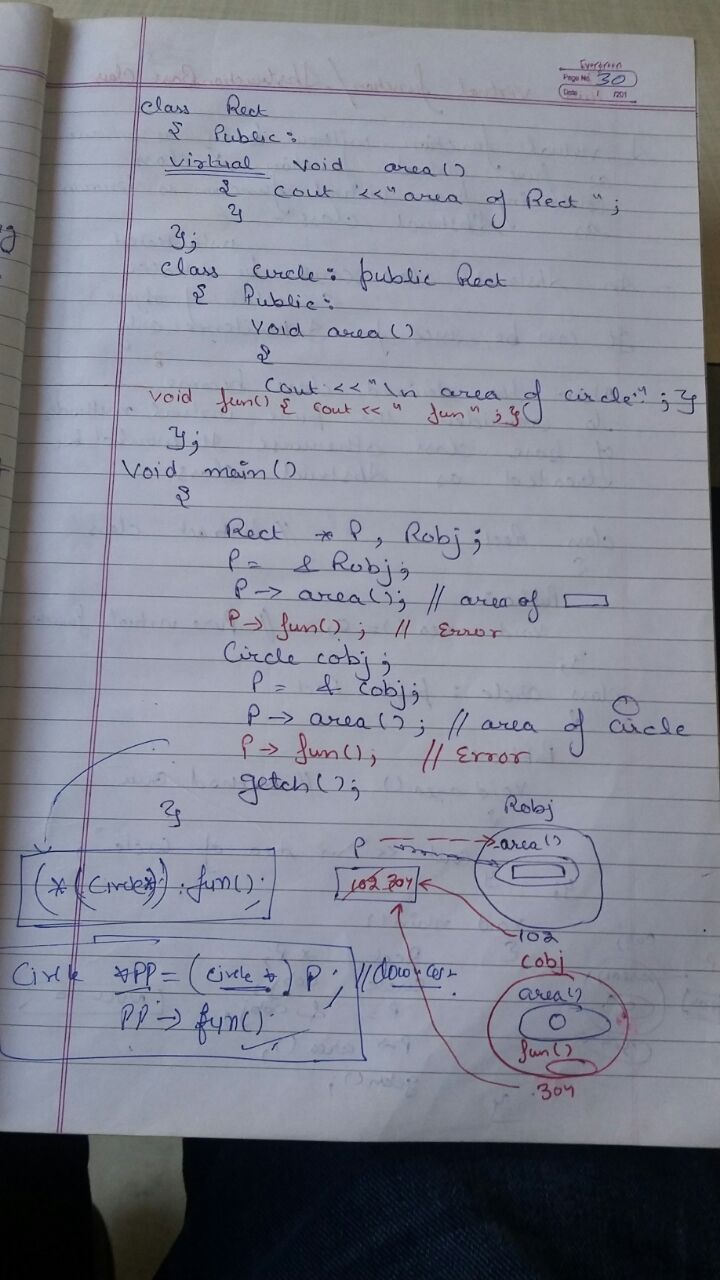 Evergreen
Page No. 30
Date / /201
class Rect
{ Public:
virtual void area()
{ cout <<"area of Rect";
}
};
class circle: public Rect
{ Public:
void area()
{
cout <<"\n area of circle:"; }
void fun() { cout << " fun" ; }
};
void main()
{
Rect * P, Robj;
P = & Robj;
P -> area(); // area of
P -> fun(); // Error
Circle cobj;
P = & cobj;
P -> area(); // area of circle
P -> fun(); // Error
getch();
}
Robj
P
area()
102 304
102
(*(Circle*)).fun().
Cobj
Circle *PP = (circle *) P; // down cast.
PP -> fun().
area()
fun()
304